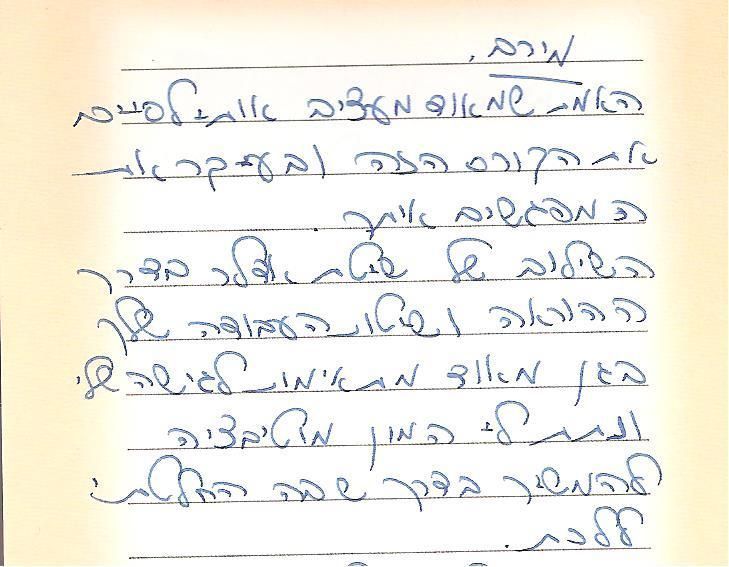 מירב,
האמת שמאוד מעציב אותי לסיים
את הקורס הזה ובעיקר את
המפגשים איתך.
השילוב של שיטת אדלר בדרך
ההוראה ושיטות העבודה שלך
בגן מאוד מתאימות לגישה שלי
ונתת לי המון מוטיבציה
להמשיך בדרך שבה החלטתי
ללכת.